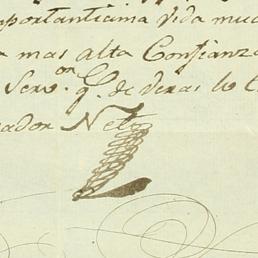 mportantisima vida much
mas alta Confianza
Servon q. de deras lo
ador Neto